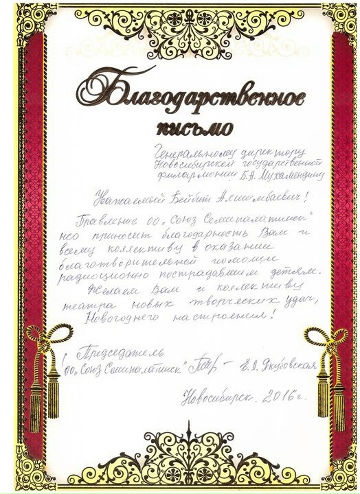 Благодарственное
письмо
Генеральному директору
Новосибирской государственной
филармонии Б.А. Мухамедину
Уважаемый Бейбит Алимбаевич!
Правление ОО "Союз Семипалатинск"
НСО приносит благодарность Вам и
всему коллективу в оказании
благотворительной помощи
радиационно пострадавшим детям.
Желаем Вам и коллективу
театра новых творческих удач,
Новогоднего настроения!
Председатель
ОО "Союз Семипалатинск" - В.Я. Якубовская
Новосибирск. 2016г.